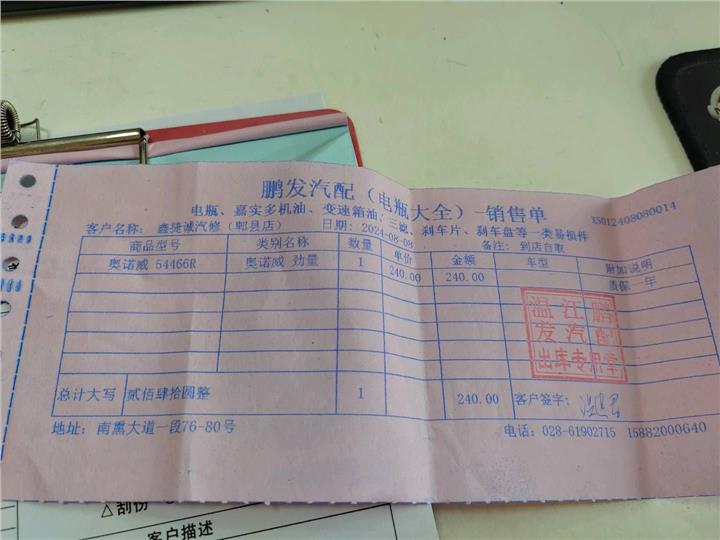 鹏发汽配（电瓶大全）-销售单
XS012408080014
电瓶、嘉实多机油、变速箱油、三滤、刹车片、刹车盘等一类易损件
客户名称：鑫捷诚汽修（郫县店） 日期：2024-08-08 备注：到店自取
商品型号 类别名称 数量 单价 金额 车型 附加说明
奥诺威 54466R 奥诺威 劲量 1 240.00 240.00 质保一年
温江鹏
发汽配
出库专用章
总计大写 贰佰肆拾圆整 1 240.00 客户签字：
地址：南熏大道一段76-80号 电话：028-61902715 15882000640
△刮伤
客户描述